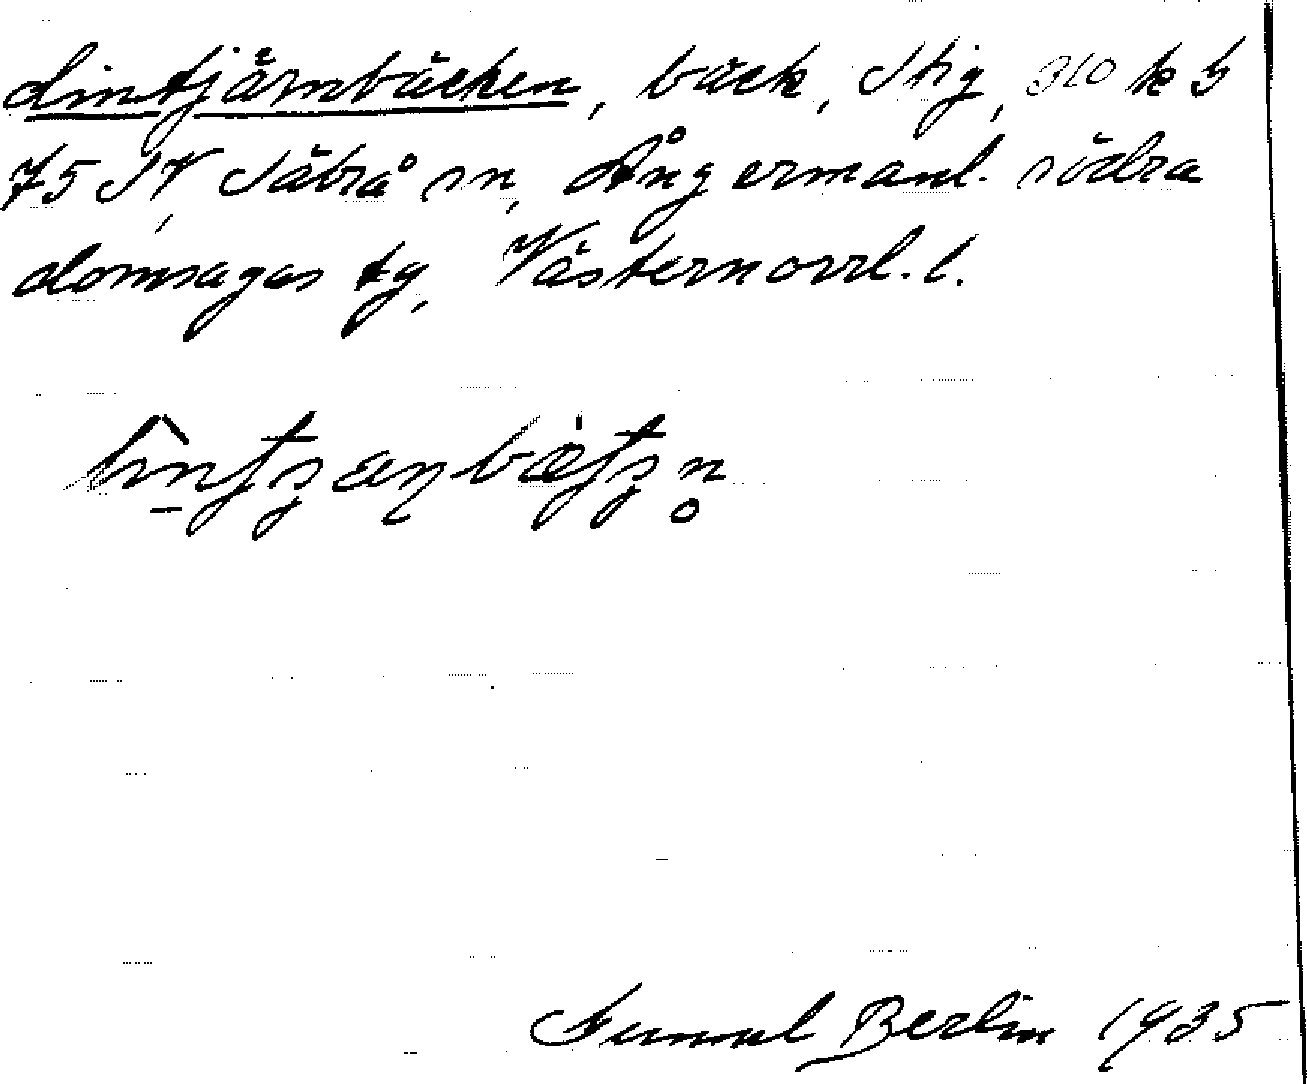 Lintjärnbäcken, bäck, Stig, 310 k 5
75 SV, Säbrå sn, Ångermanl. södra
domsagas tg, Västernorrl. l.
Gunnul Berlin 1935